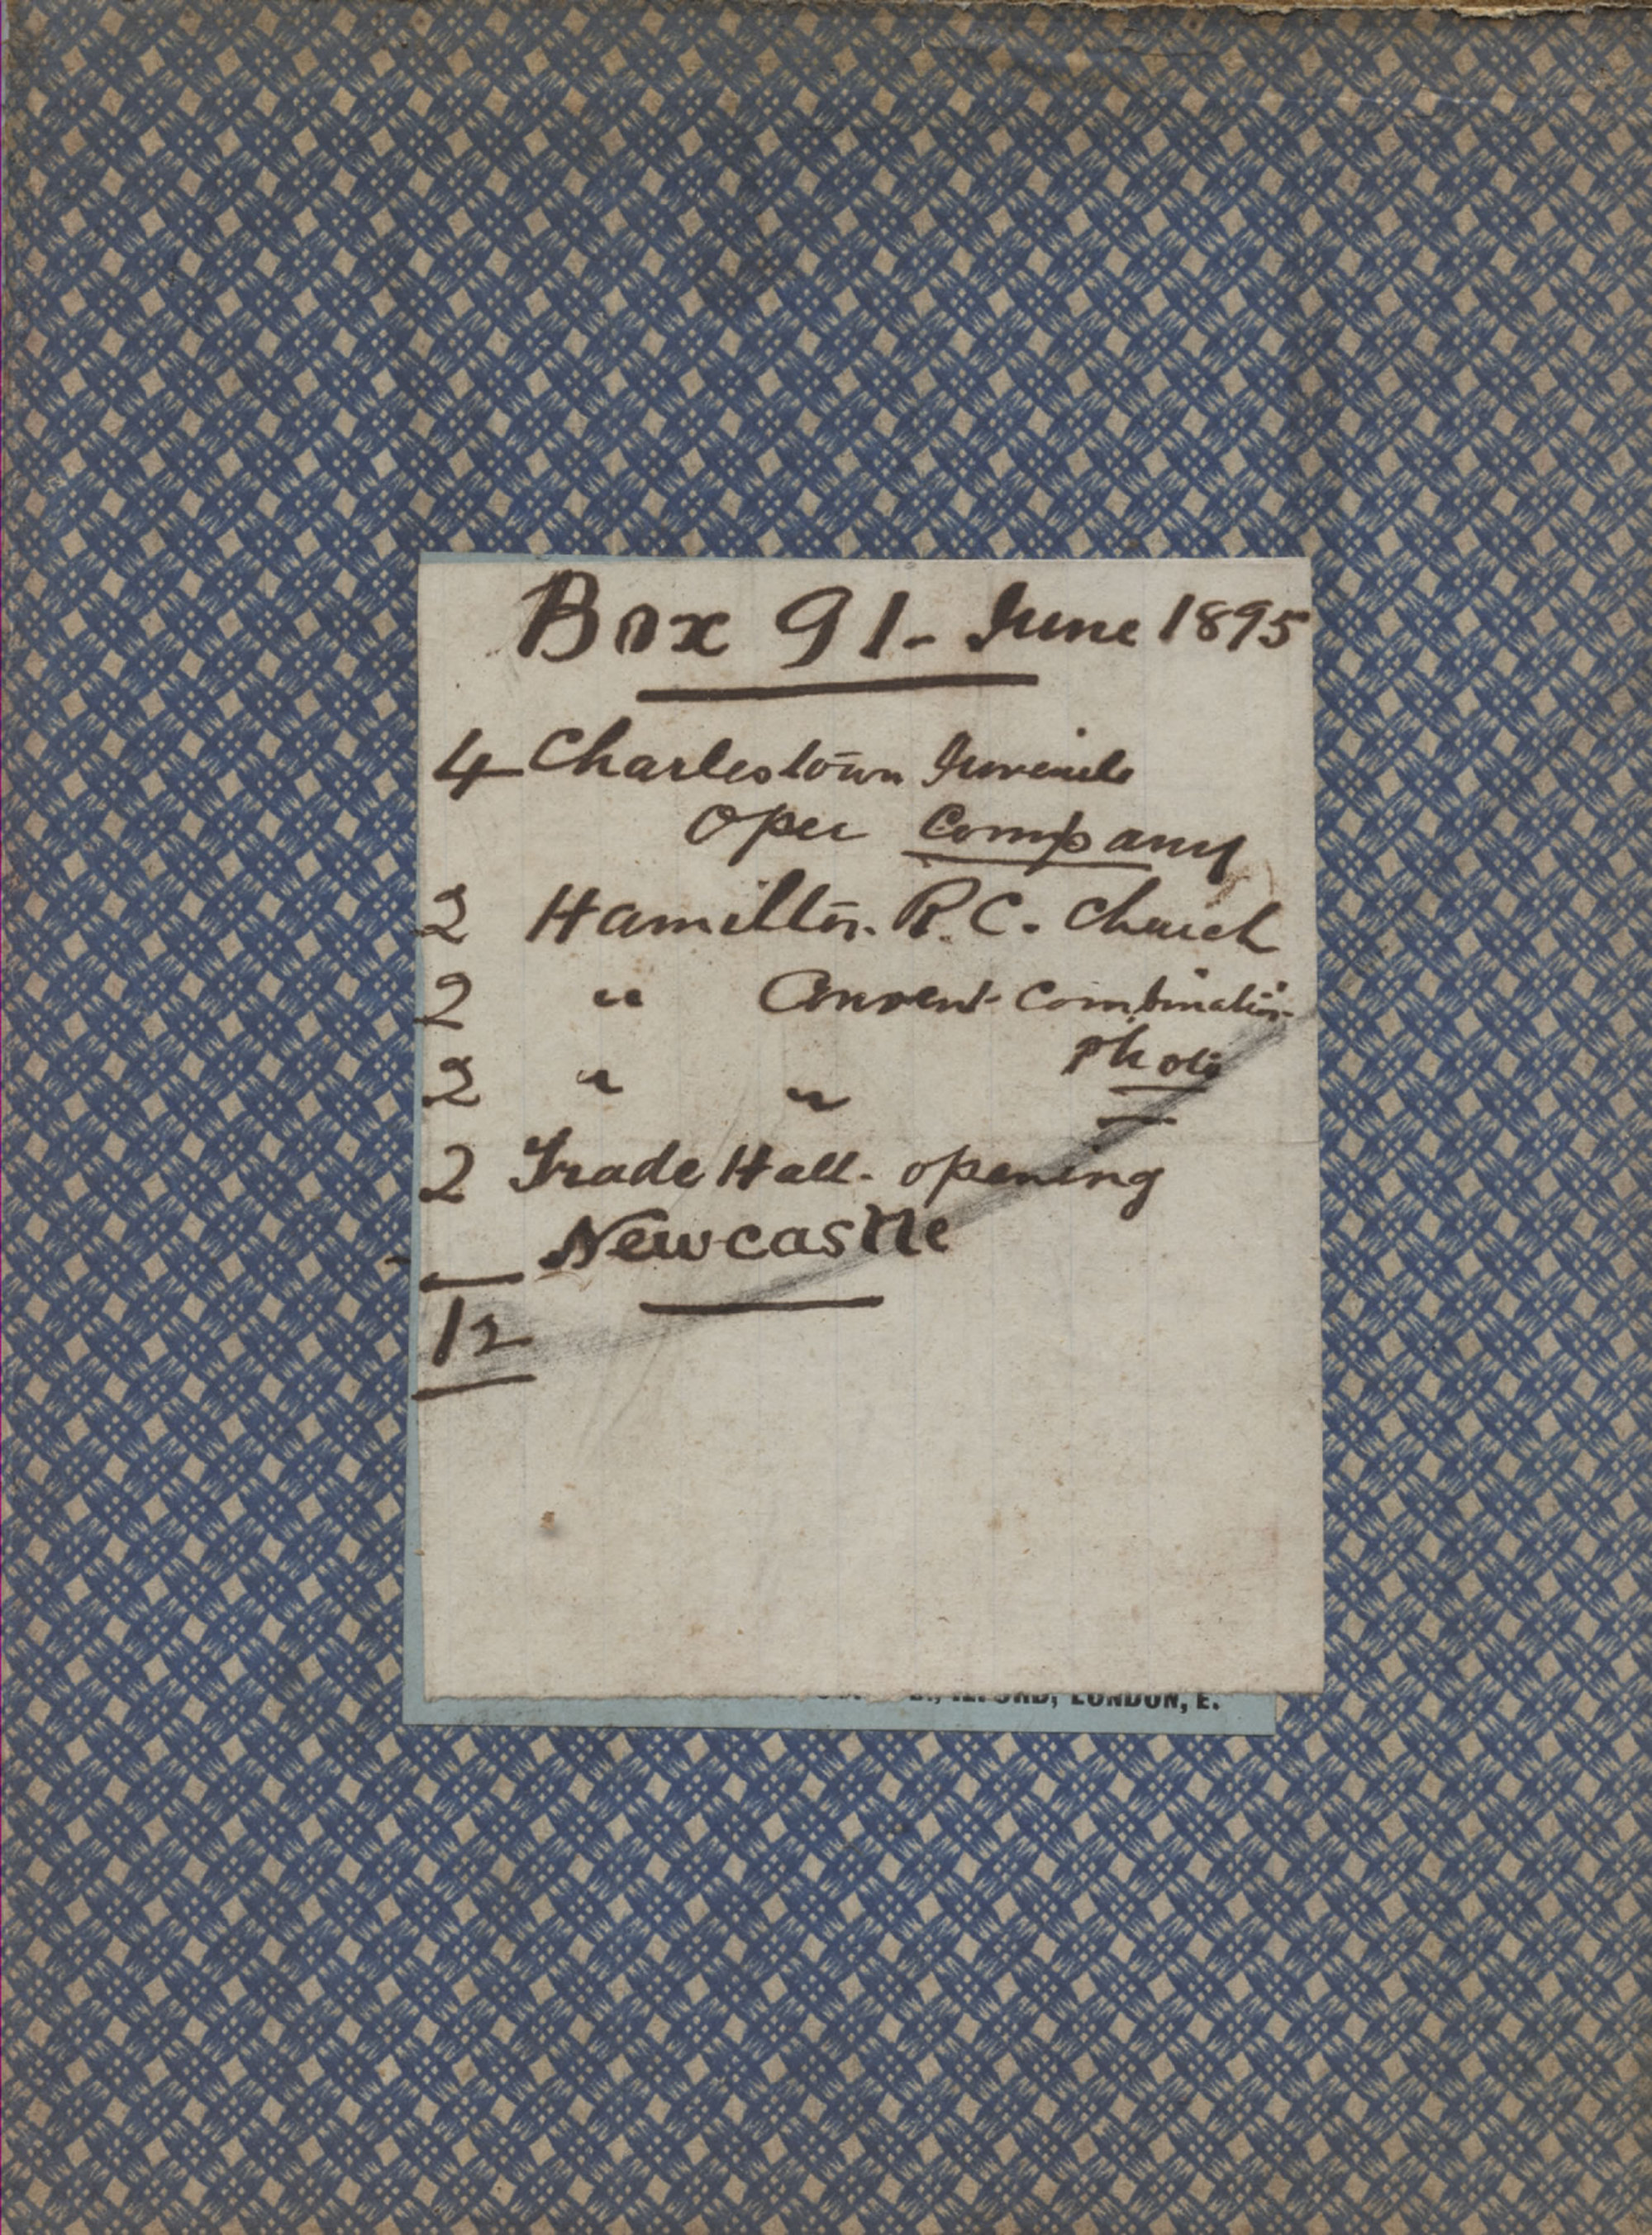 Box 91- June 1895
4 Charlestown Juvenile
Oper Company
2 Hamilton. R.C. Church
2 " Convent Combination
photo
2 " "
2 Trade Hall. opening
Newcastle
12
LONDON, E.